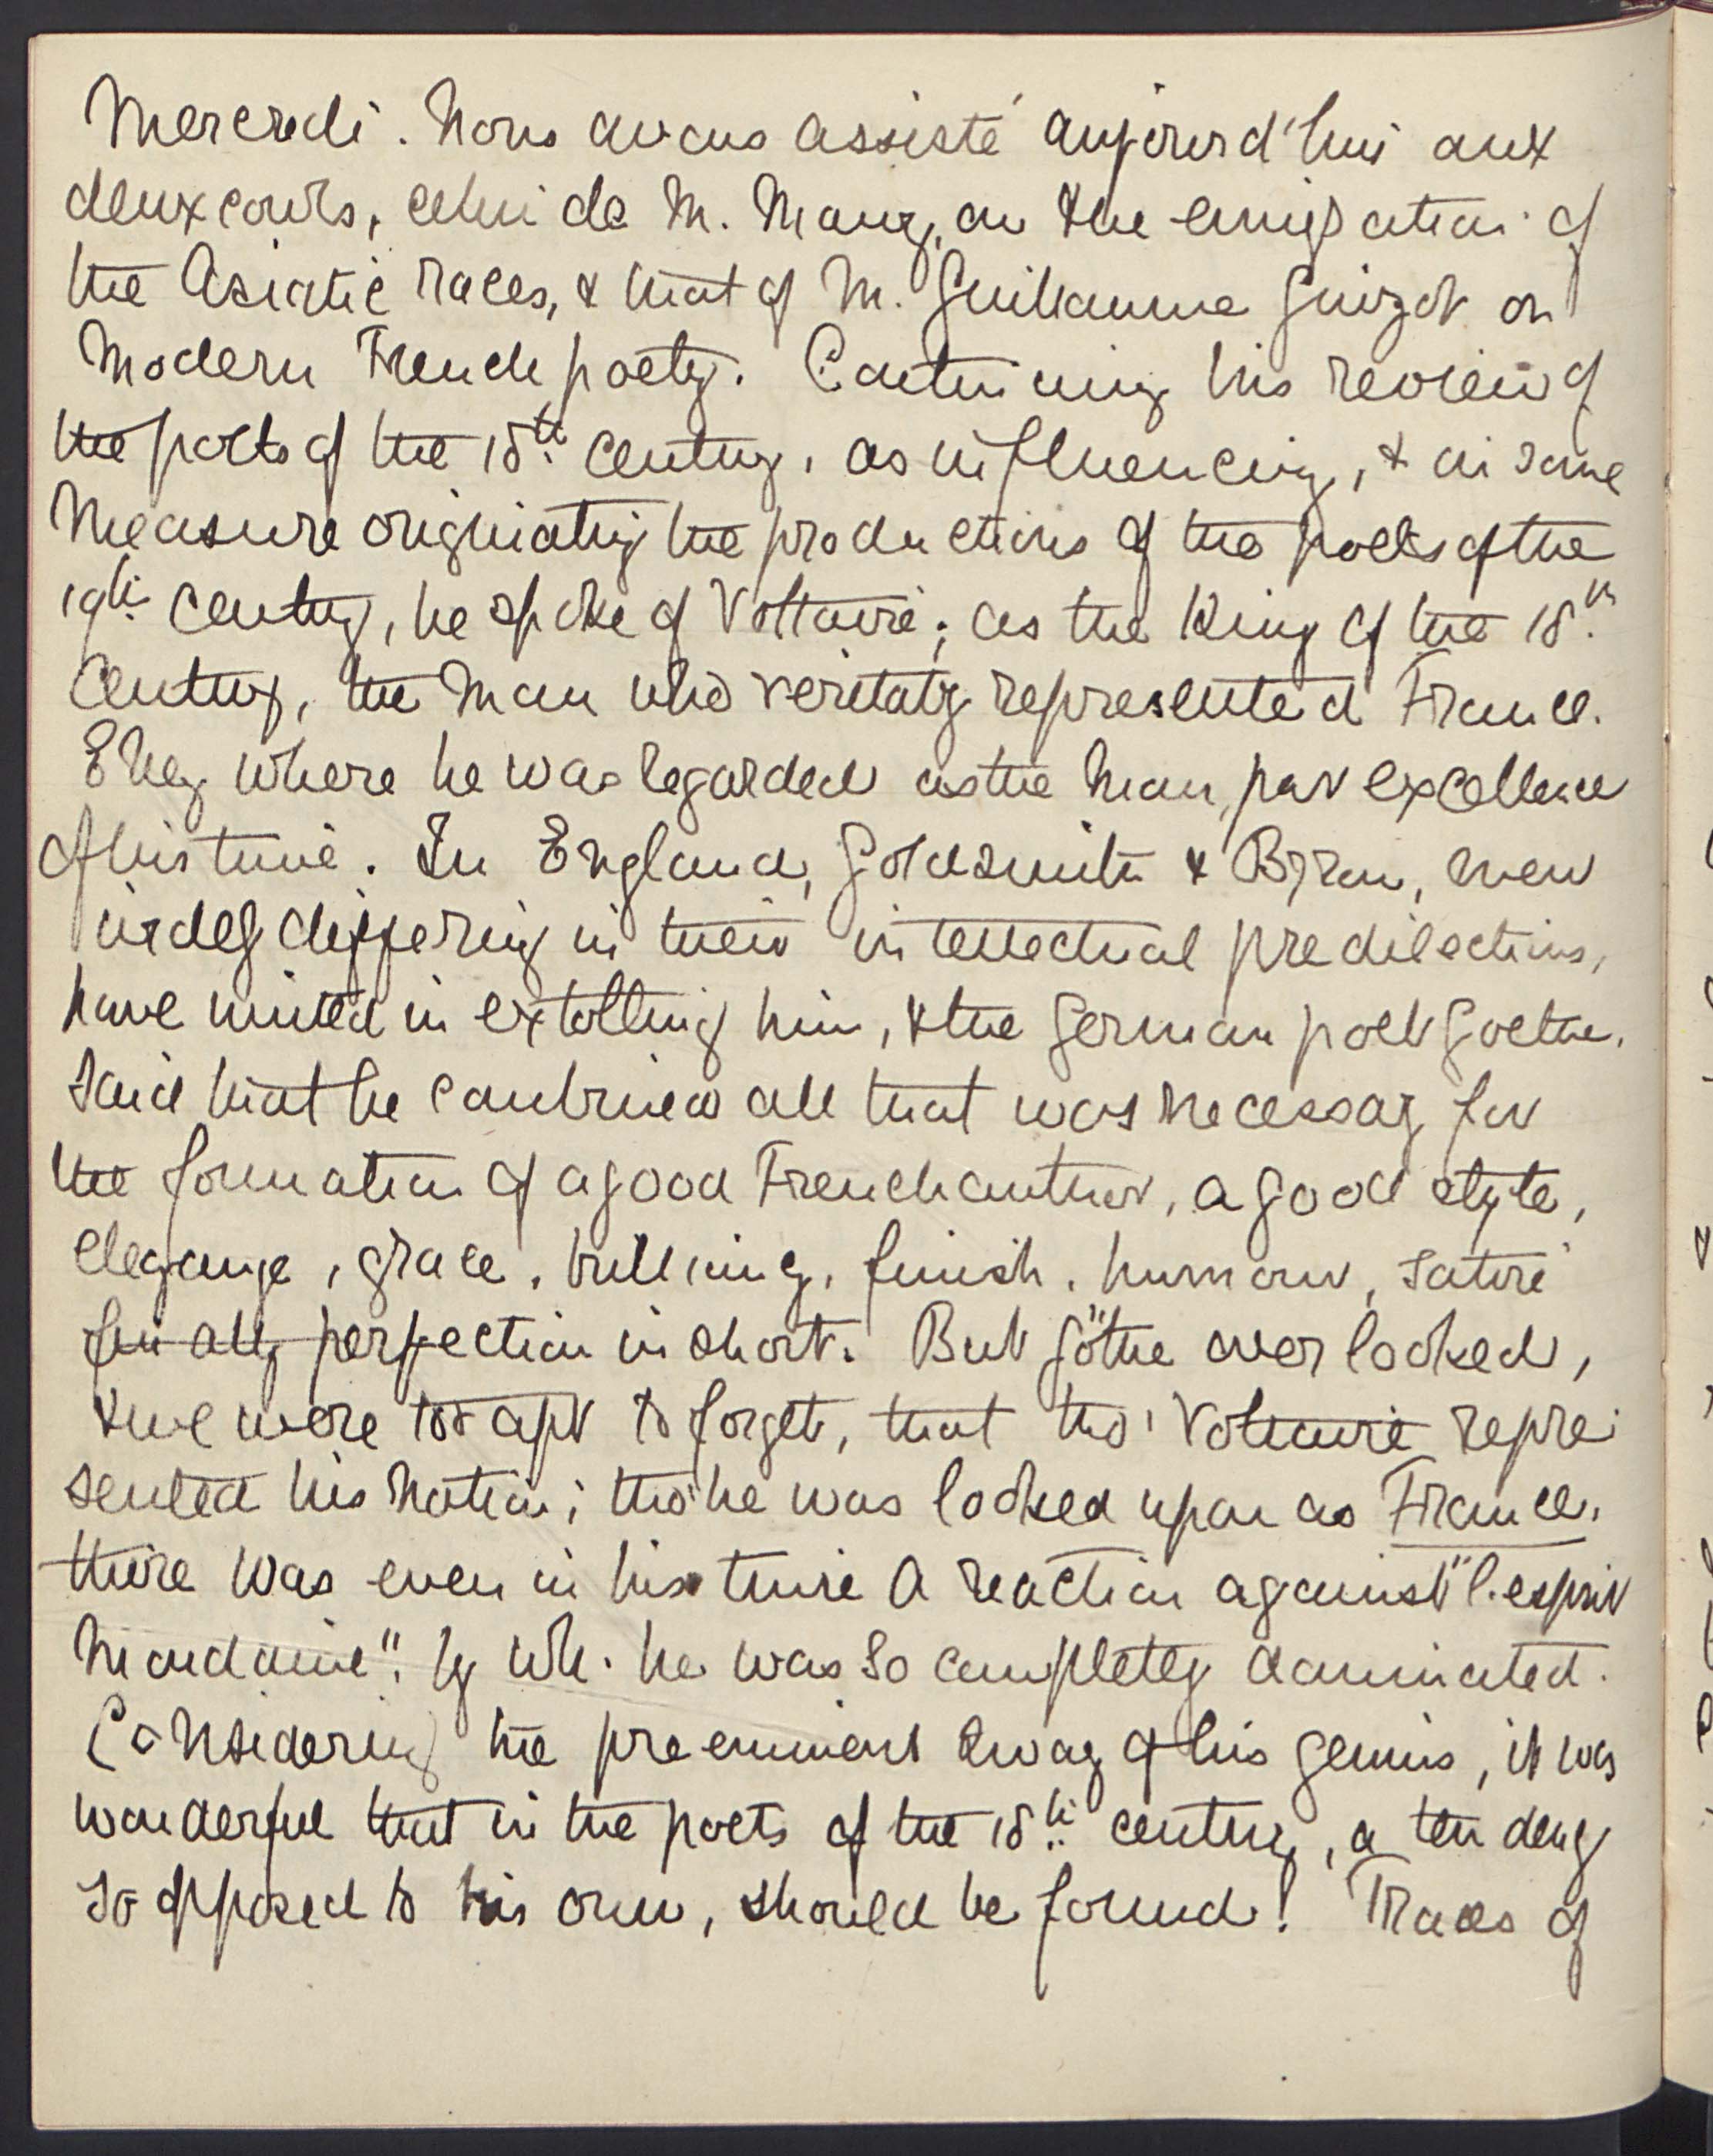 Mercredi. Nous avons assisté aujourd'hui aux
deux cours, celui de M. Maury, on the emigration of
the Asiatic races, & that of M. Guillaume Guizot on
Modern French poetry. Continuing his review of
the poets of the 18th. century, as influencing, & in some
measure originating the productions of the poets of the
19th. century, he spoke of Voltaire; as the King of the 18th.
Century, the man who veritably represented France.
Every where he was regarded as the man, par excellence
of his time. In England, Goldsmith & Byron, men
widely differing in their intellectual predilections,
have united in extolling him, & the German poet Goethe,
said that he combined all that was necessary for
the formation of a good French author, a good style,
elegance, grace, brilliancy, finish, humour, satire
finally perfection in short. But Göthe overlooked,
& we were too apt to forget, that tho' Voltaire repre
sented his nation; tho' he was looked upon as France,
there was even in his time a reaction against "l'esprit
mondaine", by wh. he was so completely dominated.
Considering the preeminent sway of his genius, it was
wonderful that in the poets of the 18th. century, a tendency
so opposed to his own, should be found! Traces of